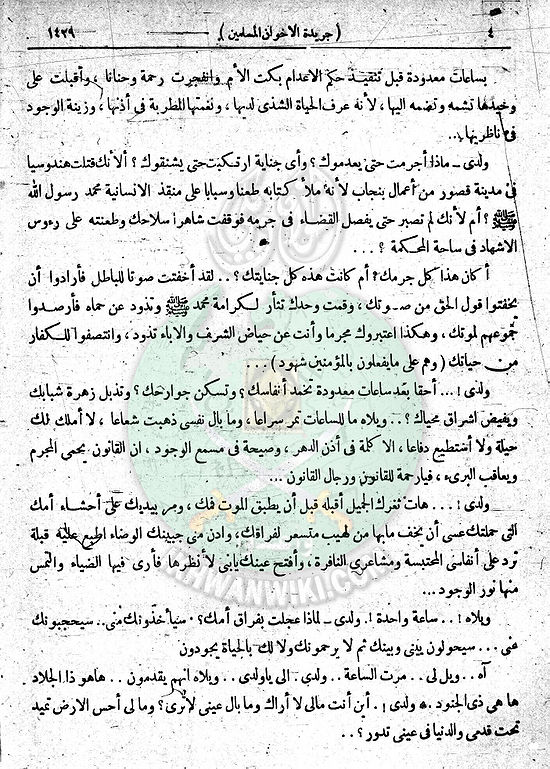 ٤ ( جريدة الاخوان المسلمين ) ١٤٣٩
بساعات معدودة قبل تنفيذ حكم الاعدام بكت الأم وانفجرت رحمة وحنانا ، وأقبلت على
وحيدها تشمه وتضمه اليها ، لأنه عرف الحياة الشذى لديها ، ونغمتها المطربة فى أذنها ، وزينة الوجود
فى ناظريها ...
ولدى ــ ماذا أجرمت حتى يعدموك ؟ وأى جناية ارتكبت حتى يشنقوك ؟ ألأنك قتلت هندوسيا
فى مدينة قصور من أعمال بنجاب لأنه ملأ كتابه طعنا وسبابا على منقذ الانسانية محمد رسول الله
ﷺ ؟ أم لأنك لم تصبر حتى يفصل القضاء فى جرمه فوقفت شاهرا سلاحك وطعنته على رءوس
الاشهاد فى ساحة المحكمة ؟ ...
أكان هذا كل جرمك ؟ أم كانت هذه كل جنايتك ؟ .. لقد أخفتت صوتا للباطل فأرادوا أن
يخفتوا قول الحق من صوتك ، وقمت وحدك تثأر لكرامة محمد ﷺ وتذود عن حماه فأرصدوا
تجموعهم لموتك ، وهكذا اعتبروك مجرما وأنت عن حياض الشريف والاباء تذود ، وانتصفوا للكفار
من حياتك ( وهم على مايفعلون بالمؤمنين شهود ) ...
ولدى ! ... أحقا بعد ساعات معدودة تخمد أنفاسك ؟ وتسكن جوارحك ؟ وتذبل زهرة شبابك
ويغيض اشراق محياك ؟ .. ويلاه ما للساعات تمر سراعا ، وما بال نفسى ذهبت شعاعا ، لا أملك لك
حيلة ولا أستطيع دفاعا ، الا كلمة فى أذن الدهر ، وصيحة فى مسمع الوجود ، ان القانون يحمى المجرم
ويعاقب البرىء ، فيارحمة للقانون ورجال القانون ...
ولدى ! ... هات ثغرك الجميل أقبله قبل أن يطبق الموت فمك ، ومر بيديك على أحشاء أمك
التى حملتك عسى أن يخف مابها من لهيب متسعر لفراقك ، وادن منى جبينك الوضاء اطبع عليه قبلة
ترد على أنفاسى المحتبسة ومشاعرى النافرة ، وأفتح عينك يابنى لأنظرها فأرى فيها الضياء وألتمس
منها نور الوجود ...
ويلاه ! .. ساعة واحدة ! . ولدى ــ لماذا عجلت بفراق أمك ؟ . سيأخذونك منى .. سيحجبونك
عنى ... سيحولون بينى وبينك ثم لا يرحمونك ولا لك بالحياة يجودون
آه .. ويل لى .. مرت الساعة .. ولدى . الى ياولدى .. ويلاه انهم يقدمون .. هاهو ذا الجلاد
ها هى ذى الجنود .. ولدى ! . أين أنت مالى لا أراك وما بال عينى لاترى ؟ وما لى أحس الارض تميد
تحت قدمى والدنيا فى عينى تدور ؟ ..